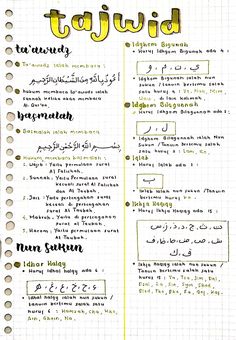 tajwid
ta'awudz
Ta'awudz ialah membaca :
أَعُوذُ بِاللّٰهِ مِنَ الشَّيْطَانِ الرَّجِيْمِ
hukum membaca ta'awudz ialah
sunnah ketika akan membaca
Al Qur'an.
basmalah
Basmalah ialah membaca :
بِسْمِ اللّٰهِ الرَّحْمٰنِ الرَّحِيْمِ
Hukum membaca basmalah :
1. Wajib : Yaitu permulaan surat
Al Fatihah.
2. Sunnah : Yaitu Permulaan surat
kecuali surat Al Fatihah
dan At Taubah.
3. Jaiz : Yaitu pertengahan surat
kecuali pertengahan surat
At Taubah.
4. Makruh : Yaitu di pertengahan
surat At Taubah.
5. Haram : Yaitu permulaan surat
At Taubah.
Nun Sukun
Idhar Halqy
Huruf Idhar Halqy ada 6 :
Idhar Halqy ialah nun sukun /
tanwin bertemu salah satu
huruf 6 : Hamzah, Cha, Kho,
Ain, Ghain, Ha.
Idghom Bigunah
Huruf Idghom Bigunah ada 4 :
ي ، ن ، م ، و
Idghom Bigunah ialah nun
sukun / tanwin bertemu salah
satu huruf 4 : Ya, Nun, Mim,
Wau.
Idghom Bilagunnah
ل ، ر
Iqlab
Huruf Iqlab ada 1 :
ب
Iqlab ialah nun sukun / Tanwin
bertemu huruf Ba.
Ikhfa Haqiqy
Huruf Ikhfa Haqiqy ada 15 :
Ikhfa Haqiqy ialah nun sukun /
Tanwin bertemu salah satu
huruf 15 : Ta, Tsa, Jim, Dal,